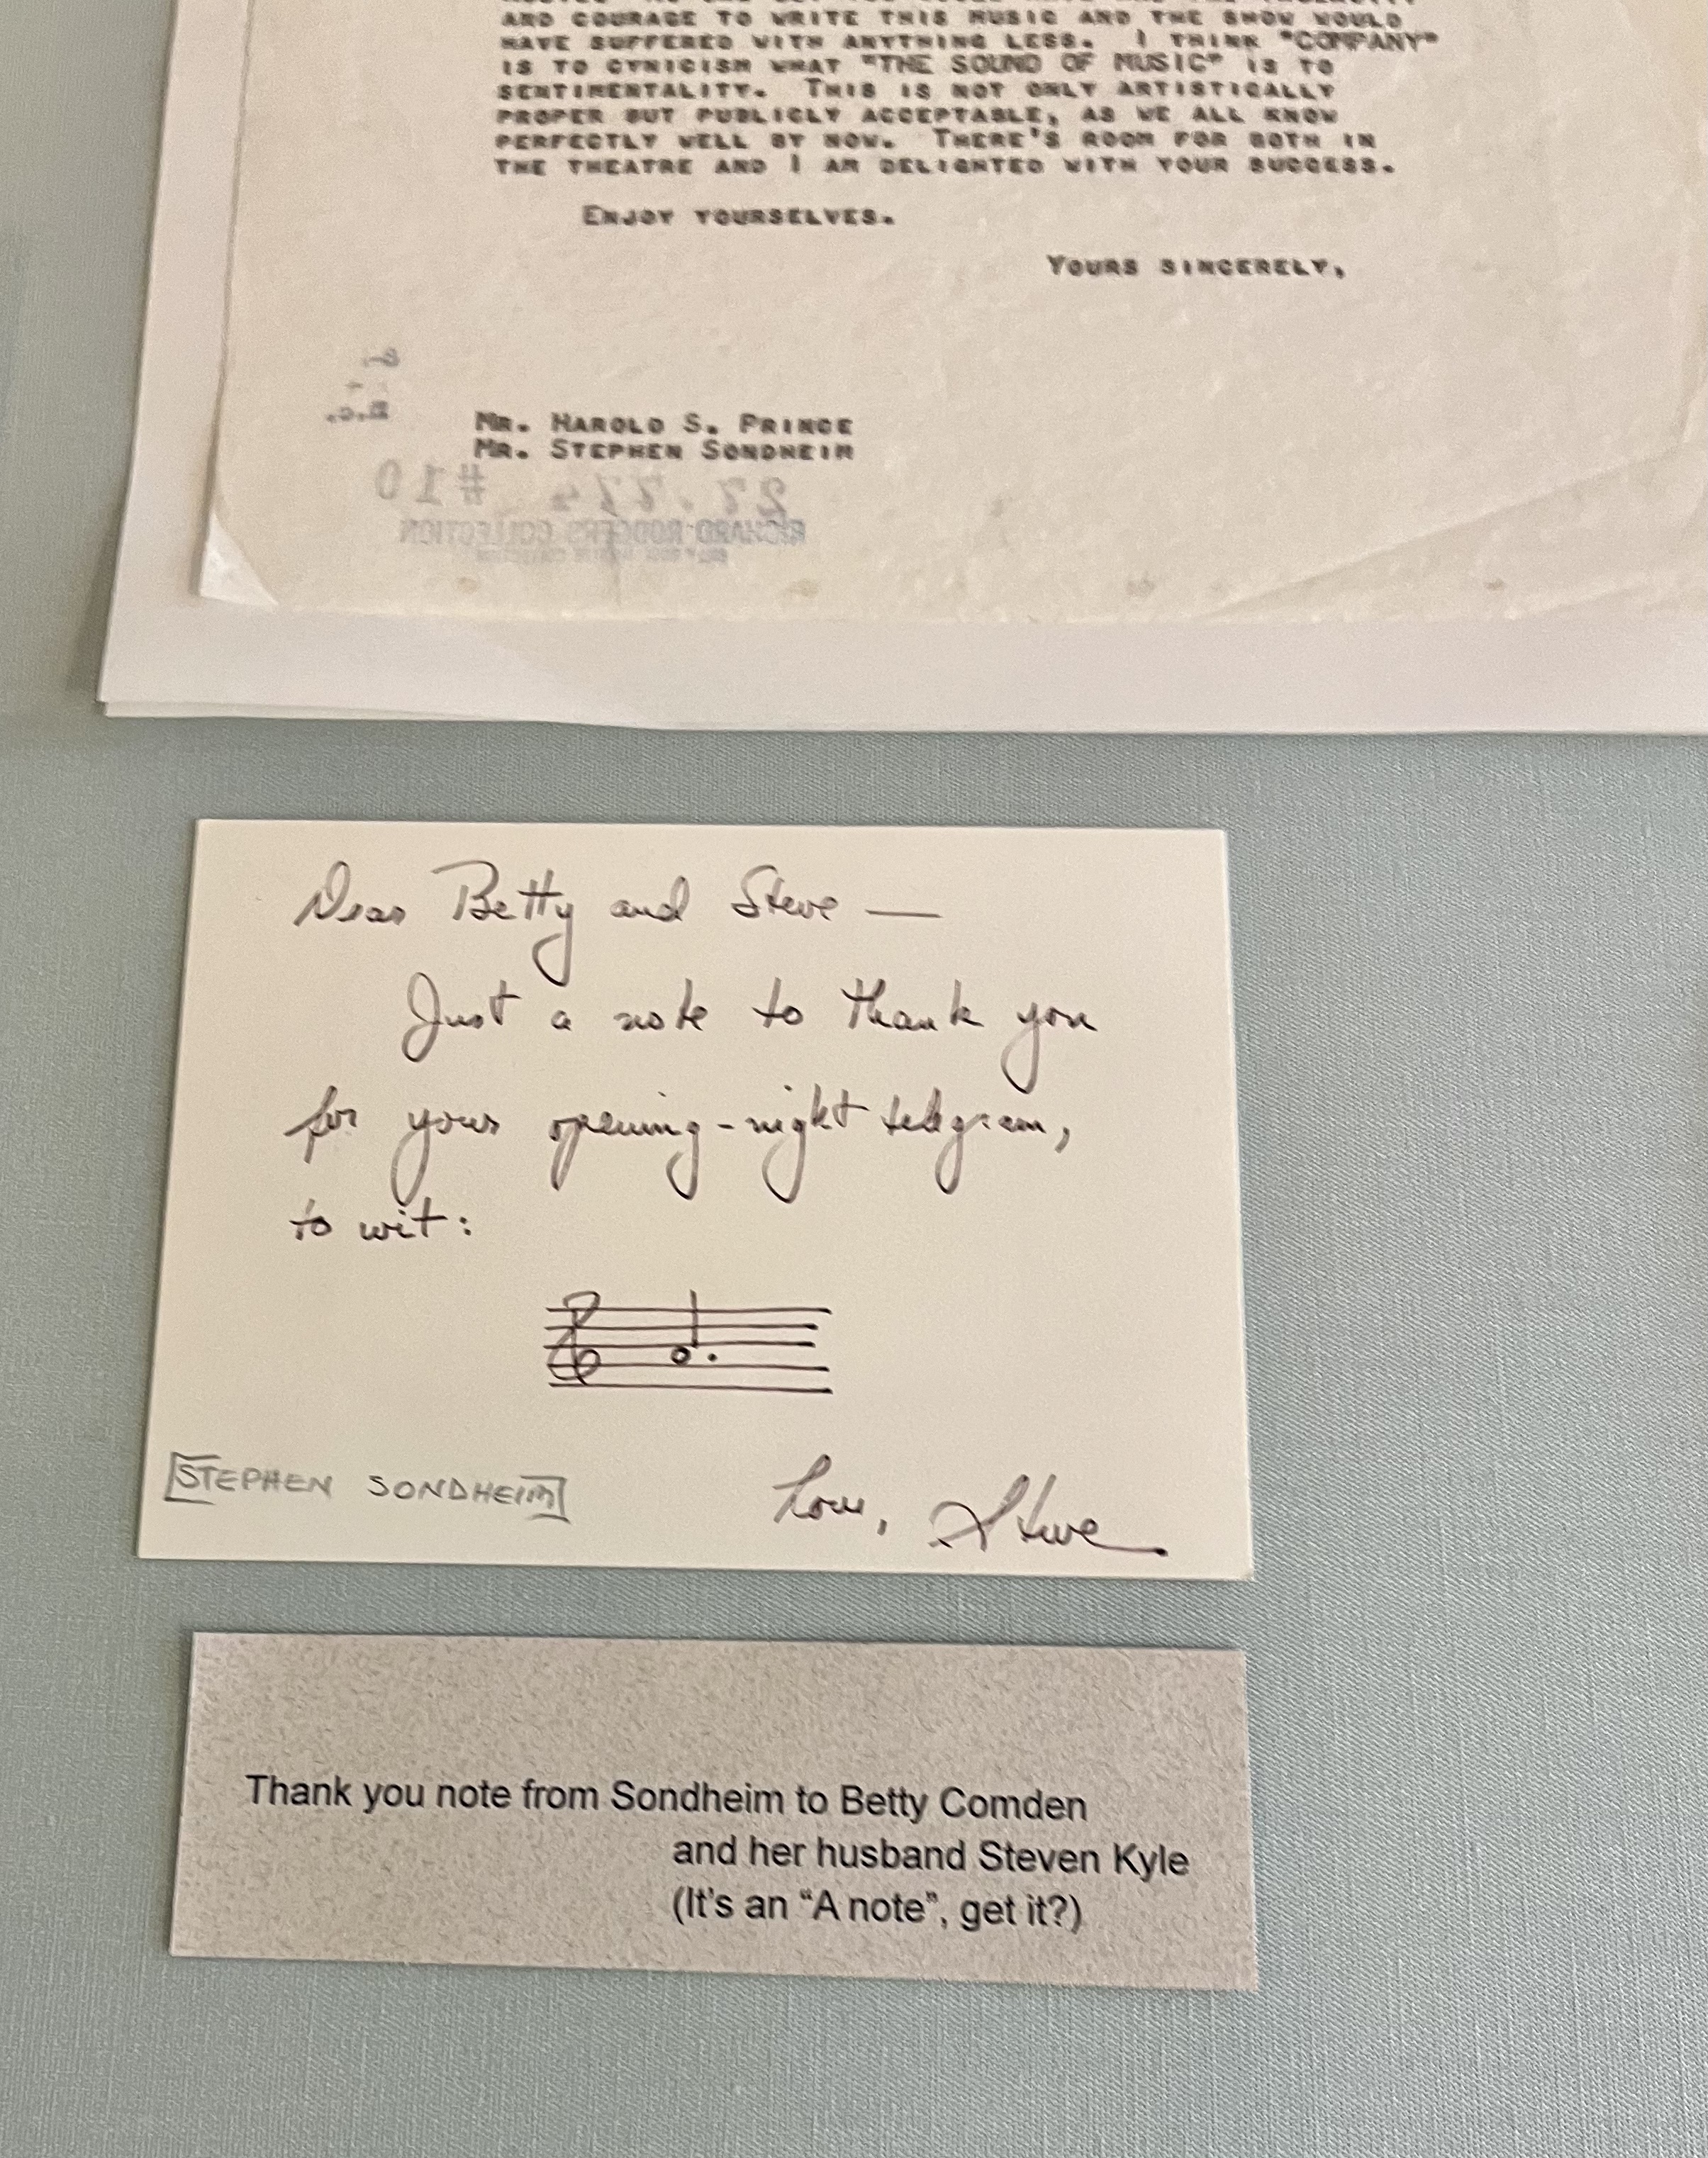 AND COURAGE TO WRITE THIS MUSIC AND THE SHOW WOULD
HAVE SUFFERED WITH ANYTHING LESS.  I THINK "COMPANY"
IS TO CYNICISM WHAT "THE SOUND OF MUSIC" IS TO
SENTIMENTALITY.  THIS IS NOT ONLY ARTISTICALLY
PROPER BUT PUBLICLY ACCEPTABLE, AS WE ALL KNOW
PERFECTLY WELL BY NOW.  THERE'S ROOM FOR BOTH IN
THE THEATRE AND I AM DELIGHTED WITH YOUR SUCCESS.
ENJOY YOURSELVES.
YOURS SINCERELY,
MR. HAROLD S. PRINCE
MR. STEPHEN SONDHEIM
#10
RICHARD RODGERS COLLECTION
Dear Betty and Steve —
Just a note to thank you
for your opening-night telegram,
to wit:
Love, Steve
[STEPHEN SONDHEIM]
Thank you note from Sondheim to Betty Comden
and her husband Steven Kyle
(It's an “A note”, get it?)